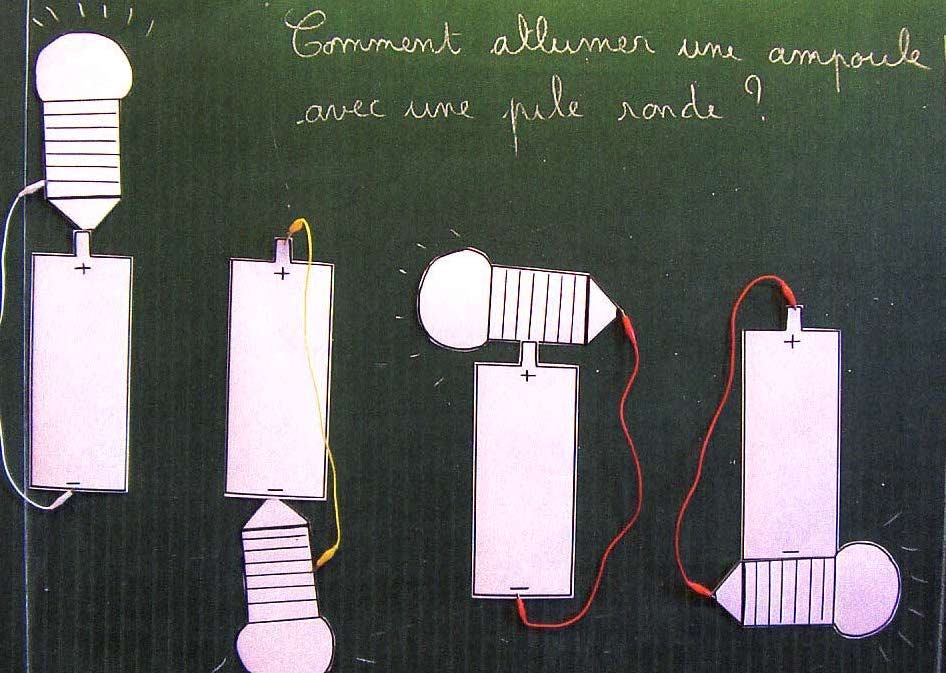 Comment allumer une ampoule
avec une pile ronde ?
+
+
+
+
-
-
-
-